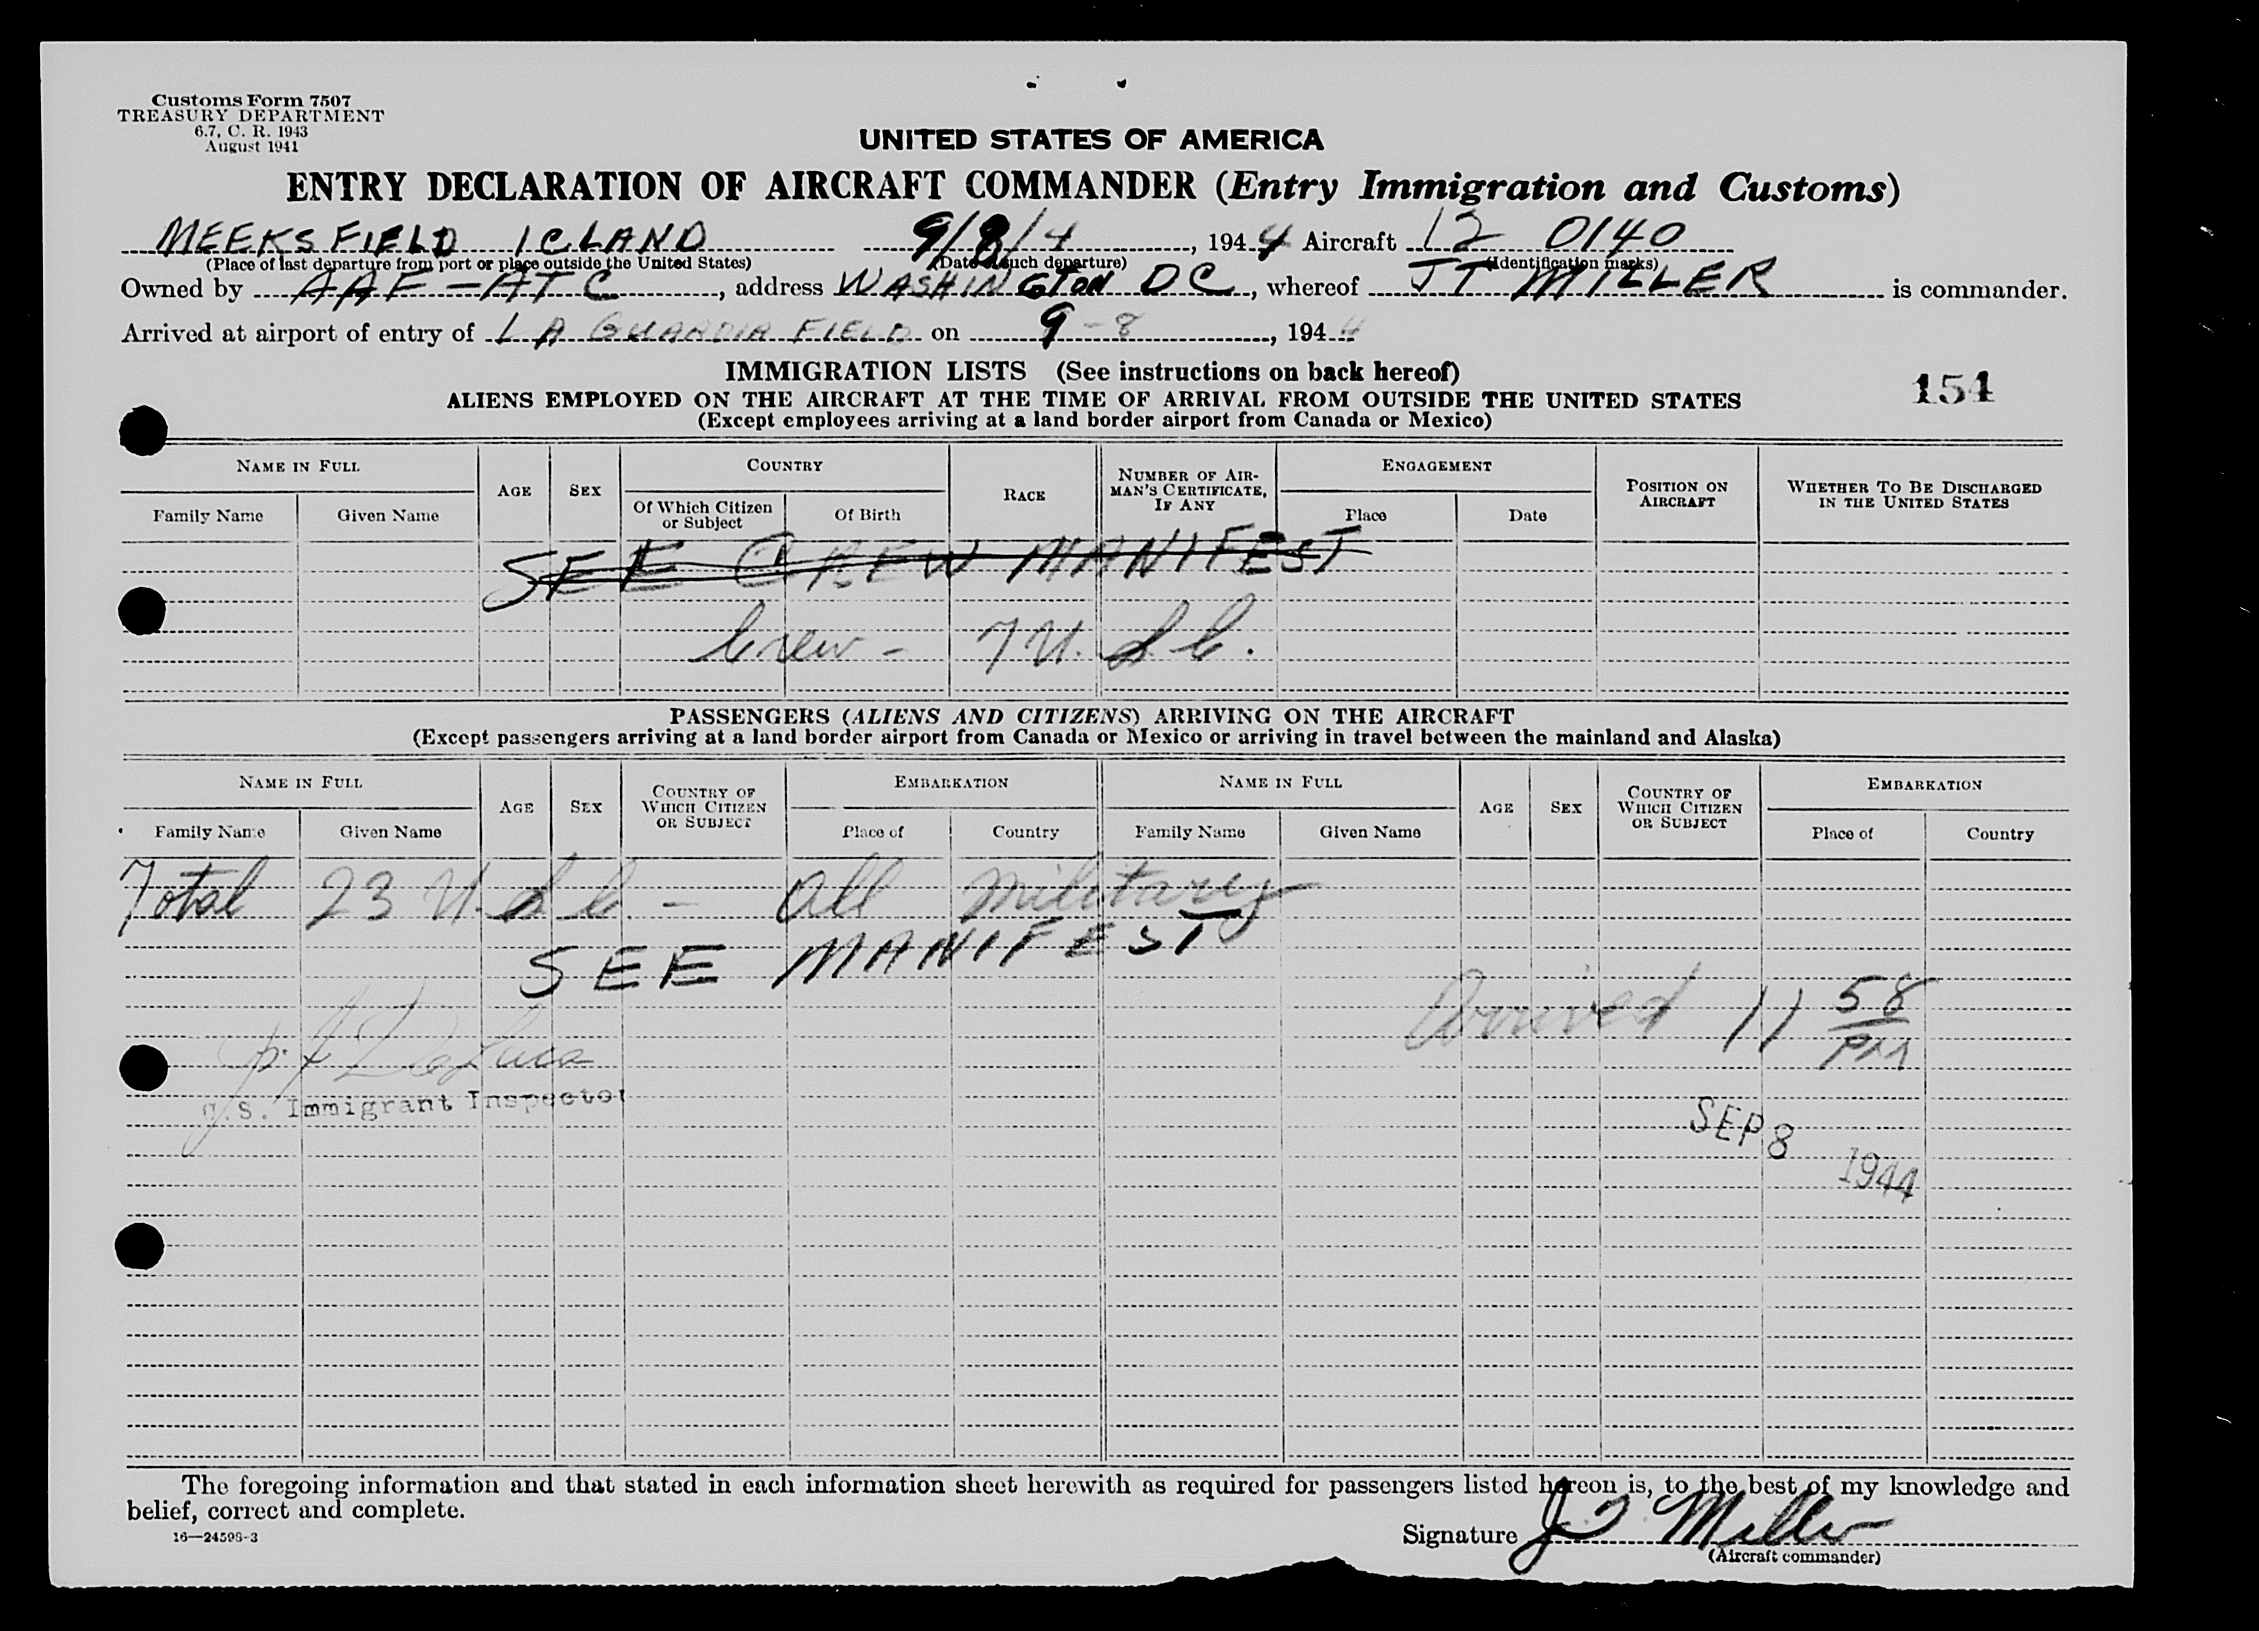 Customs Form 7507
TREASURY DEPARTMENT
6.7, C. R. 1943
August 1941
UNITED STATES OF AMERICA
ENTRY DECLARATION OF AIRCRAFT COMMANDER (Entry Immigration and Customs)
MEEKS FIELD ICLAND 9/8/4, 1944 Aircraft 12 0140
(Place of last departure from port or place outside the United States) (Date of such departure) (Identification marks)
Owned by AAF-ATC, address WASHINGTON DC, whereof JT MILLER is commander.
Arrived at airport of entry of LA GUARDIA FIELD on 9-8, 1944
IMMIGRATION LISTS (See instructions on back hereof)
154
ALIENS EMPLOYED ON THE AIRCRAFT AT THE TIME OF ARRIVAL FROM OUTSIDE THE UNITED STATES
(Except employees arriving at a land border airport from Canada or Mexico)
NAME IN FULL AGE SEX COUNTRY RACE NUMBER OF AIRMAN'S CERTIFICATE, IF ANY ENGAGEMENT POSITION ON AIRCRAFT WHETHER TO BE DISCHARGED IN THE UNITED STATES
Family Name Given Name Of Which Citizen or Subject Of Birth Place Date
SEE CREW MANIFEST
Crew - 7 U.S.C.
PASSENGERS (ALIENS AND CITIZENS) ARRIVING ON THE AIRCRAFT
(Except passengers arriving at a land border airport from Canada or Mexico or arriving in travel between the mainland and Alaska)
NAME IN FULL AGE SEX COUNTRY OF WHICH CITIZEN OR SUBJECT EMBARKATION NAME IN FULL AGE SEX COUNTRY OF WHICH CITIZEN OR SUBJECT EMBARKATION
Family Name Given Name Place of Country Family Name Given Name Place of Country
Total 23 U.S.C. - All Military
SEE MANIFEST
Arrived 11 58 PM
U.S. Immigrant Inspector
SEP 8 1944
The foregoing information and that stated in each information sheet herewith as required for passengers listed hereon is, to the best of my knowledge and
belief, correct and complete.
16—24598-3
Signature JT Miller
(Aircraft commander)